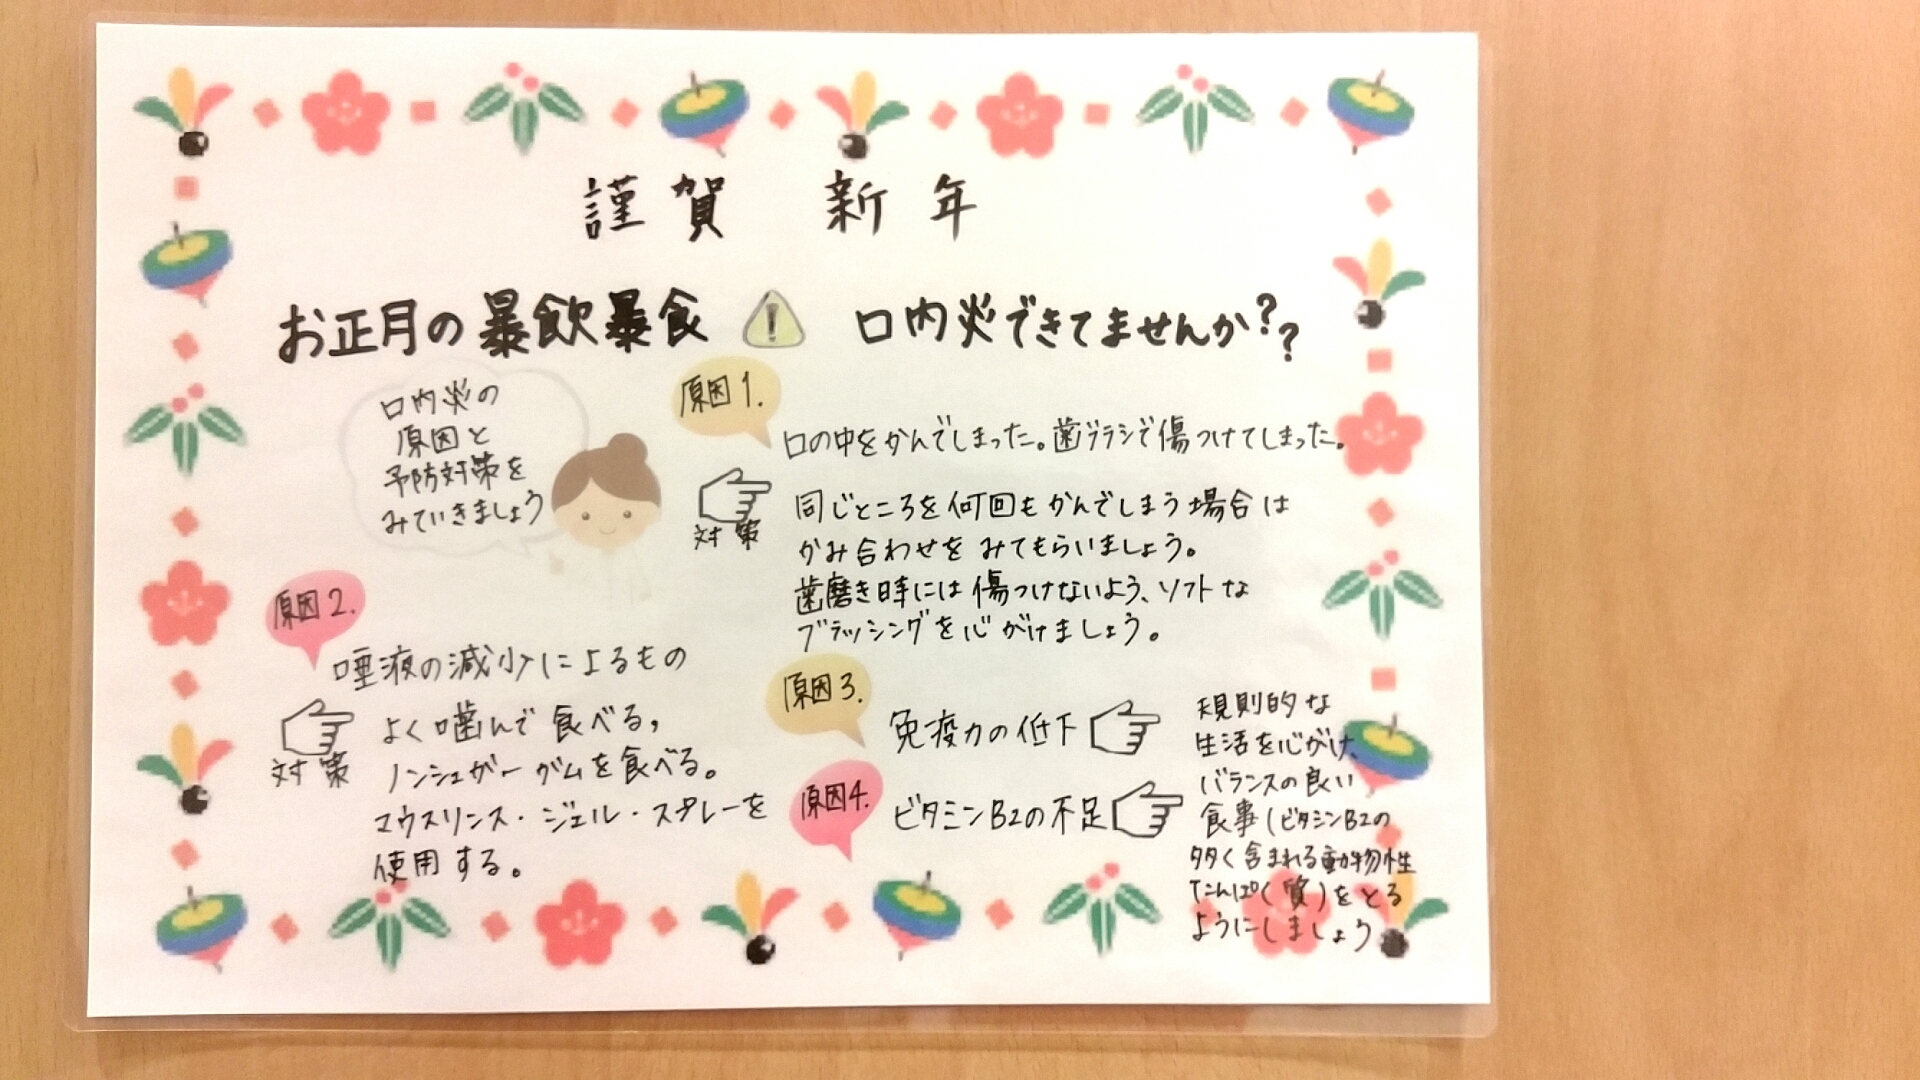 謹賀 新年
お正月の暴飲暴食 ! 口内炎できてませんか??
口内炎の
原因と
予防対策を
みていきましょう
原因1.
口の中をかんでしまった。歯ブラシで傷つけてしまった。
対策
同じところを何回もかんでしまう場合は
かみ合わせをみてもらいましょう。
歯磨き時には傷つけないよう、ソフトな
ブラッシングを心がけましょう。
原因2.
唾液の減少によるもの
対策
よく噛んで食べる,
ノンシュガーガムを食べる。
マウスリンス・ジェル・スプレーを
使用する。
原因3.
免疫力の低下
原因4.
ビタミンB2の不足
規則的な
生活を心がけ、
バランスの良い
食事(ビタミンB2の
多く含まれる動物性
たんぱく質)をとる
ようにしましょう